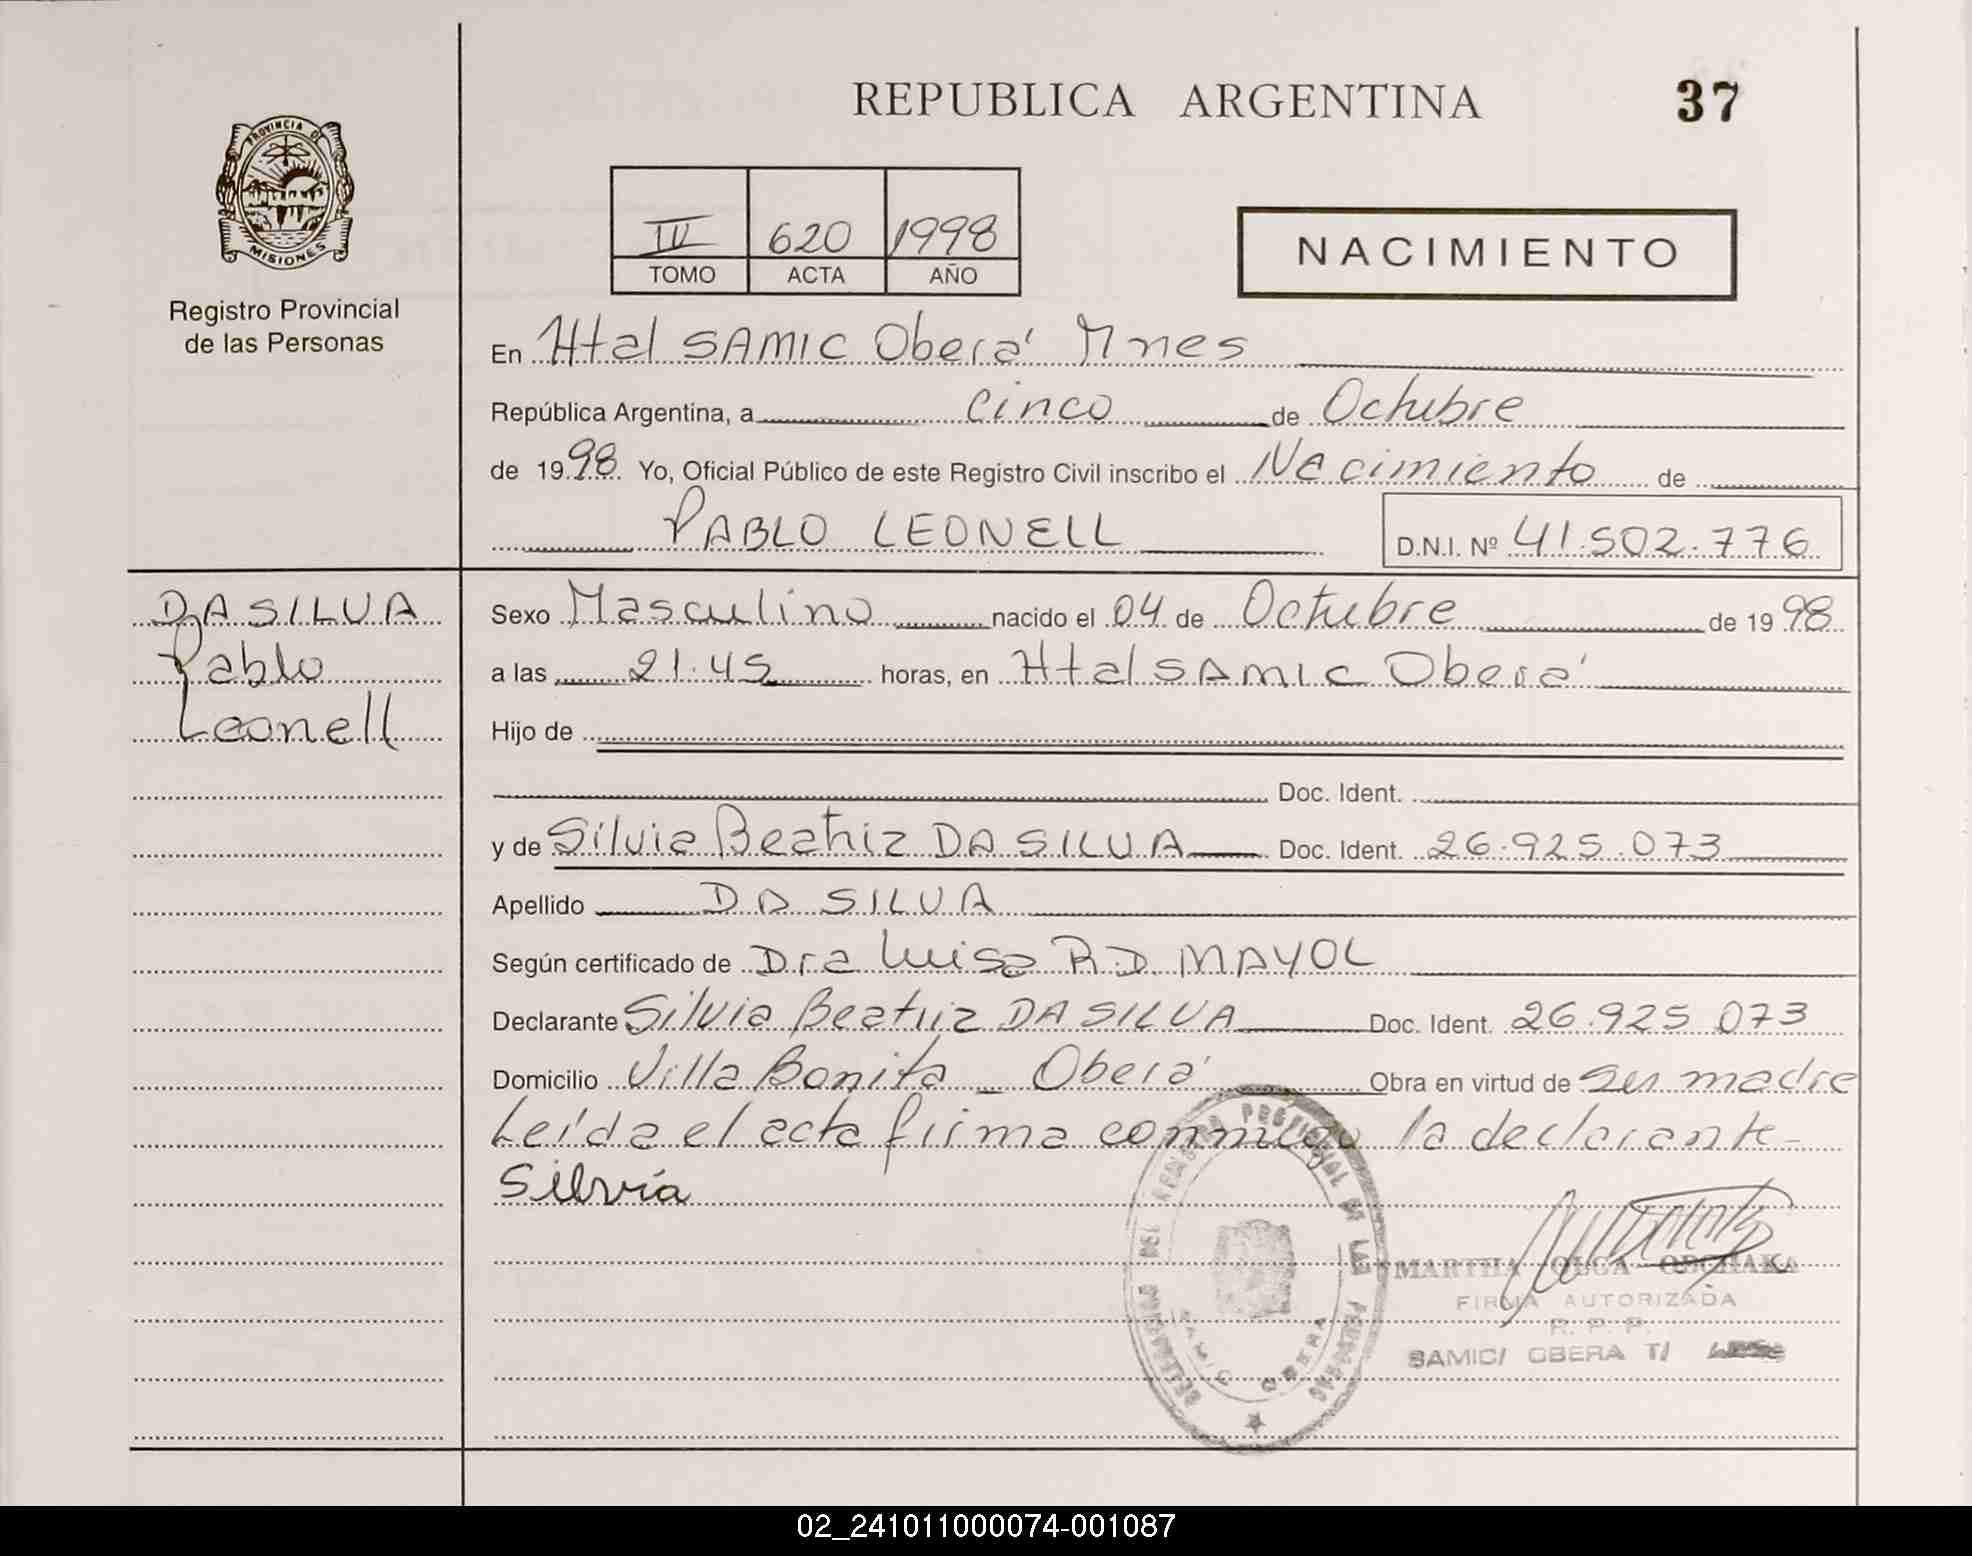 REPUBLICA ARGENTINA
37
PROVINCIA DE
MISIONES
Registro Provincial
de las Personas
IV 620 1998
TOMO ACTA AÑO
NACIMIENTO
En Htal SAMIC Oberá Mnes
República Argentina, a cinco de Octubre
de 1998 Yo, Oficial Público de este Registro Civil inscribo el Nacimiento de
PABLO LEONELL
D.N.I. Nº 41.502.776
DA SILVA
Pablo
Leonell
Sexo Masculino nacido el 04 de Octubre de 1998
a las 21.45 horas, en Htal SAMIC Oberá
Hijo de
Doc. Ident.
y de Silvia Beatriz DA SILVA Doc. Ident. 26.925.073
Apellido DA SILVA
Según certificado de Dra Luisa R.D. MAYOL
Declarante Silvia Beatriz DA SILVA Doc. Ident. 26.925.073
Domicilio Villa Bonita - Oberá Obra en virtud de ser madre
Leída el acta firma conmigo la declarante-
Silvia
MARTHA OLGA
FIRMA AUTORIZADA
R. P. P.
SAMIC/ OBERA T/
SAMIC OBERA
02_241011000074-001087